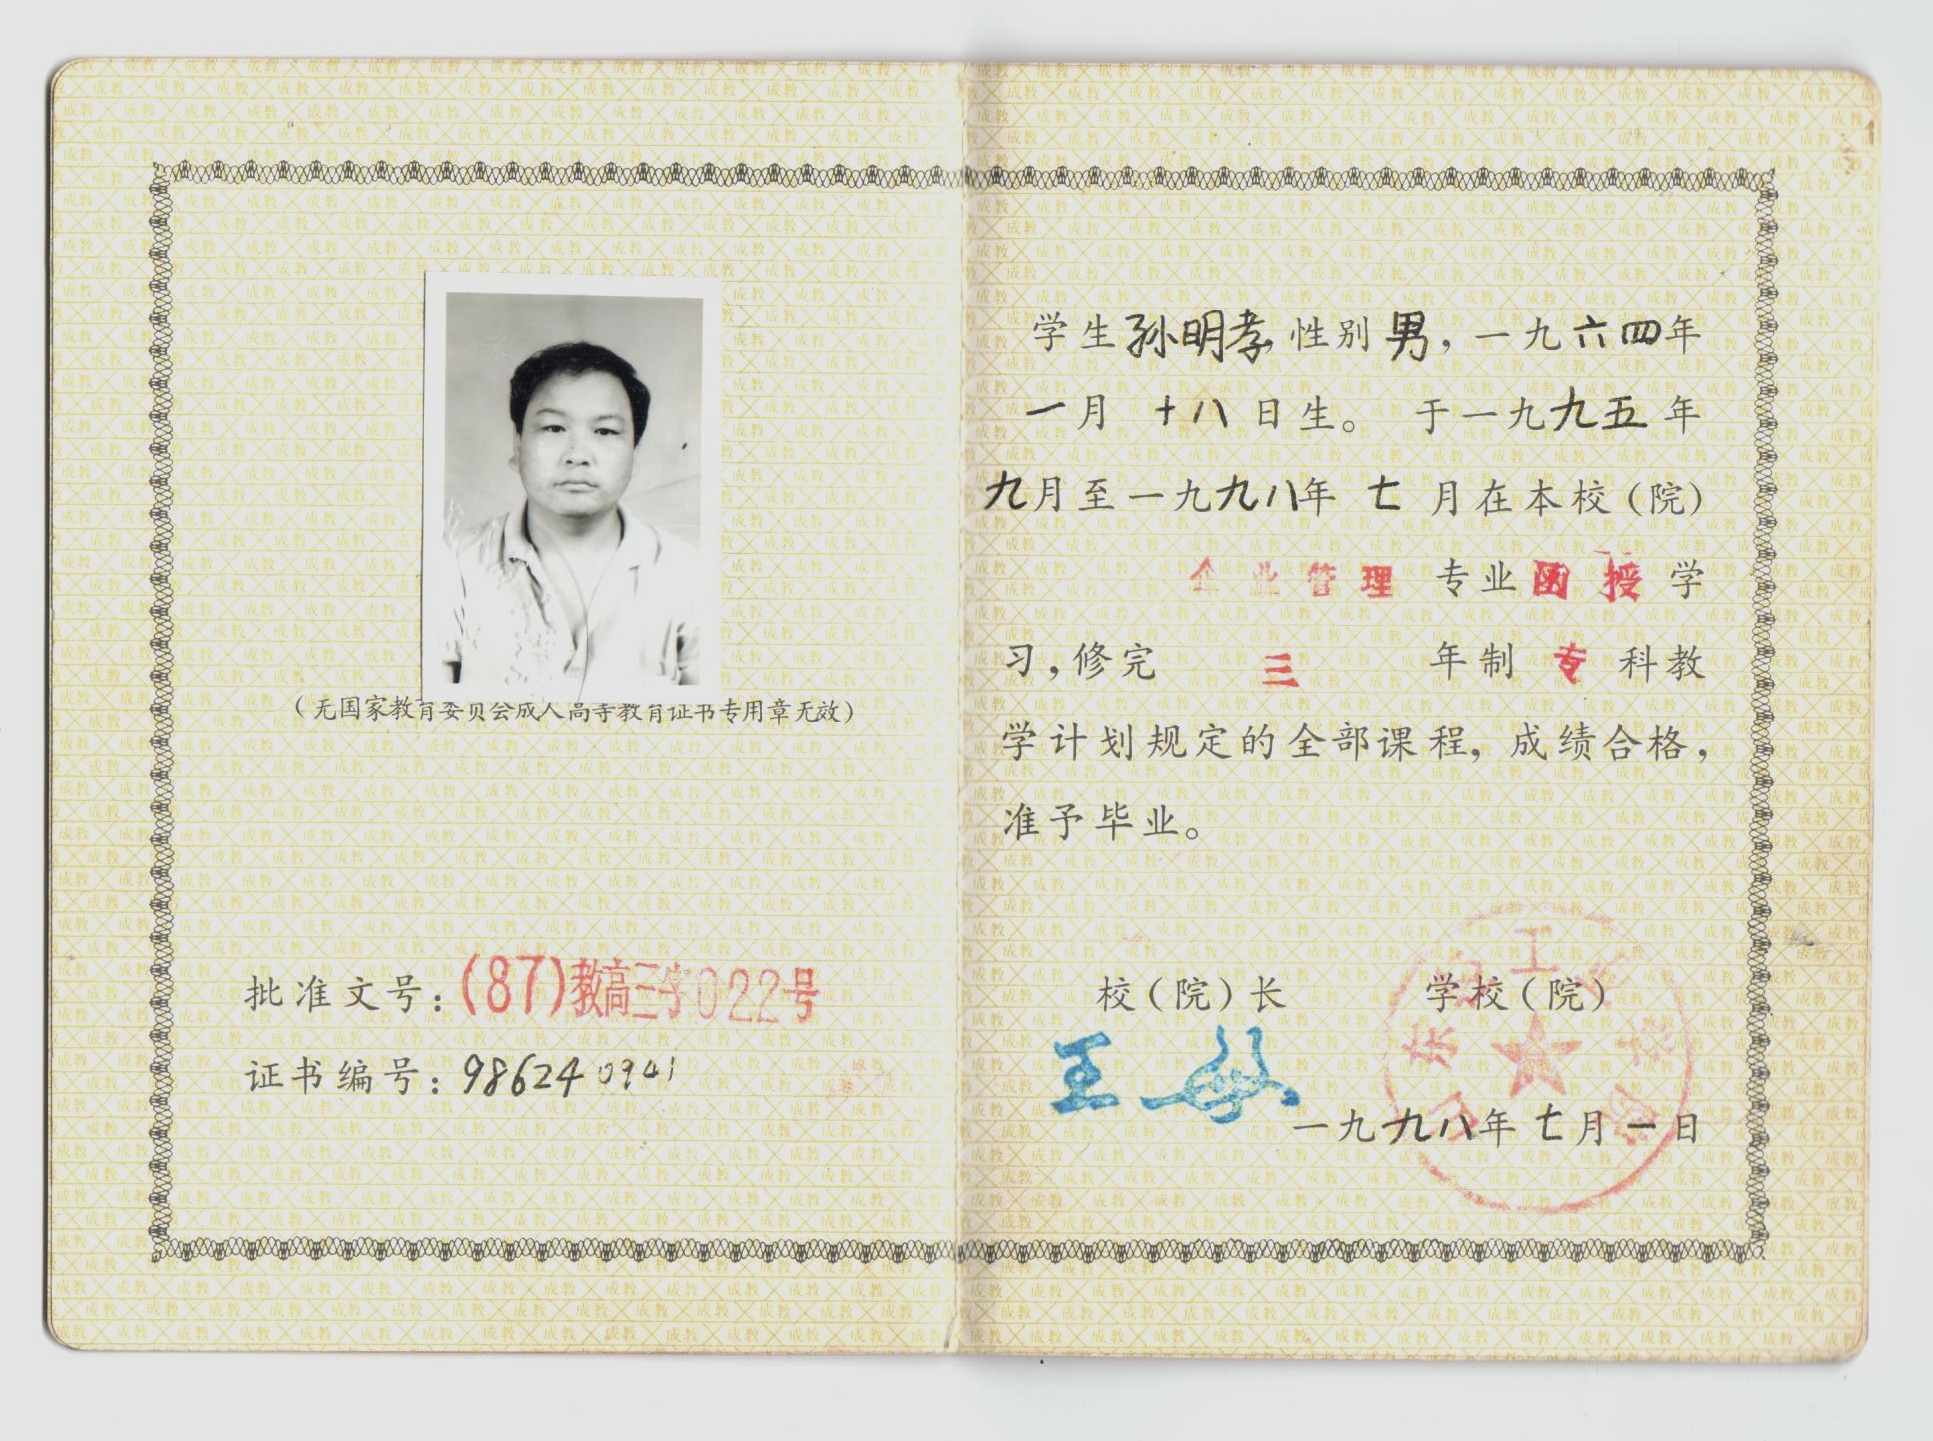 (无国家教育委员会成人高等教育证书专用章无效)
批准文号:(87)教高三字022号
证书编号:986240941
学生孙明孝,性别男,一九六四年
一月十八日生。于一九九五年
九月至一九九八年七月在本校(院)
企业管理专业函授学
习,修完三年制专科教
学计划规定的全部课程,成绩合格,
准予毕业。
校(院)长 学校(院)
王
一九九八年七月一日